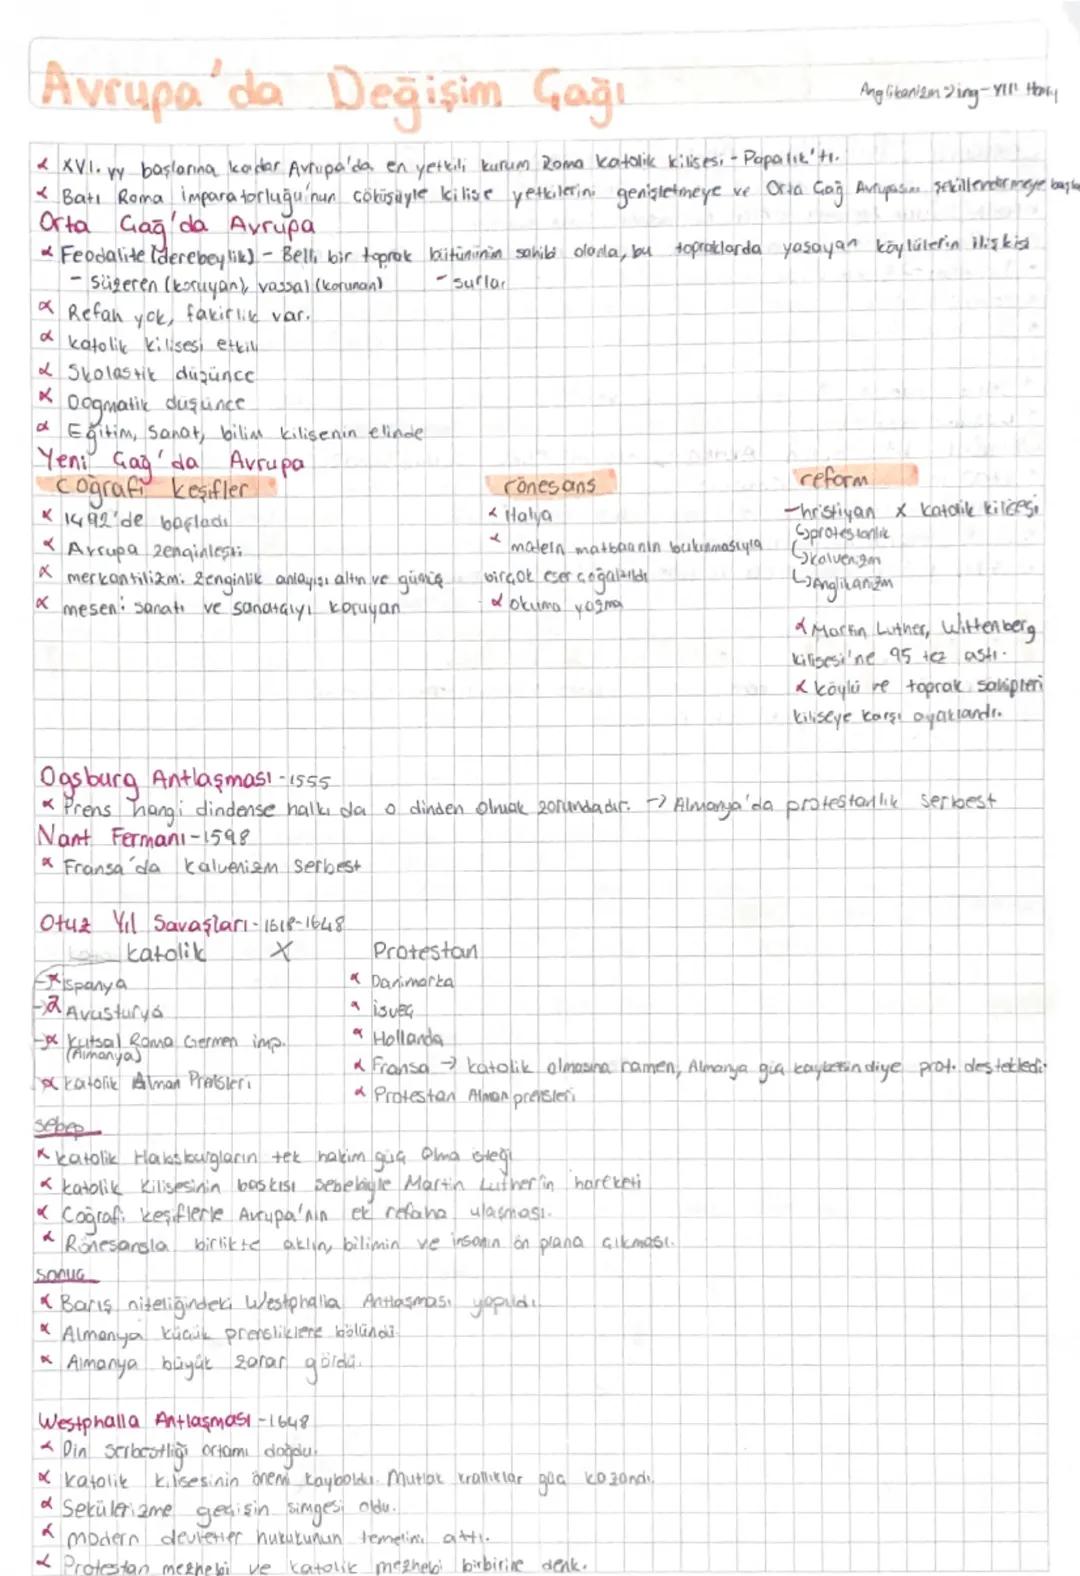 Avrupa'da Değişim Çağı
Anglikanizm → ing - VIII Henry
XVI. yy başlarına kadar Avrupa'da en yetkili kurum Roma Katolik kilisesi - Papalık'tı.
Batı Roma İmparatorluğu'nun çöküşüyle kilise yetkilerini genişletmeye ve Orta Çağ Avrupasını şekillendirmeye başla
Orta Çağ'da Avrupa
Feodalite (derebeylik) - Belli bir toprak bütününün sahibi olanla, bu topraklarda yaşayan köylülerin ilişkisi
- Süzeren (koruyan), vassal (korunan) - surlar
Refah yok, fakirlik var.
Katolik kilisesi etkili
Skolastik düşünce
Dogmatik düşünce
Eğitim, Sanat, bilim kilisenin elinde
Yeni Çağ'da Avrupa
Coğrafi keşifler
1492'de başladı
Avrupa zenginleşti
merkantilizm: Zenginlik anlayışı altın ve gümüş
mesen: Sanatı ve sanatçıyı koruyan
rönesans
İtalya
matbaanın bulunmasıyla
birçok eser çoğaltıldı
okuma yazma
reform
hristiyan x Katolik kilisesi
↳ protestanlık
↳ kalvenizm
↳ Anglikanizm
Martin Luther, Wittenberg
kilisesi'ne 95 tez astı.
köylü ve toprak sahipleri
kiliseye karşı ayaklandı.
Ogsburg Antlaşması - 1555
Prens hangi dindense halkı da o dinden olmak zorundadır. → Almanya'da protestanlık serbest
Nant Fermanı - 1598
Fransa'da Kalvenizm serbest
Otuz Yıl Savaşları - 1618-1648
Katolik X Protestan
İspanya
Avusturya
Kutsal Roma Germen imp.
(Almanya)
Katolik Alman Prensleri
Danimarka
isveç
Hollanda
Fransa → katolik olmasına ramen, Almanya güç kaybetsin diye prot. destekledi.
Protestan Alman prensleri
sebep
Katolik Habsburgların tek hakim güç olma isteği
Katolik Kilisesinin baskısı sebebiyle Martin Luther'in hareketi
Coğrafi keşiflerle Avrupa'nın ek refaha ulaşması.
Rönesansla birlikte aklın, bilimin ve insanın ön plana çıkması.
sonuç
Barış niteliğindeki Westphalla Antlaşması yapıldı.
Almanya küçük prensliklere bölündü.
Almanya büyük zarar gördü.
Westphalla Antlaşması - 1648
Din serbestliği ortamı doğdu.
Katolik kilisesinin önemi kayboldu. Mutlak krallıklar güç kazandı.
Sekülerizme geçişin simgesi oldu.
modern devletler hukukunun temelini attı.
Protestan mezhebi ve Katolik mezhebi birbirine denk.